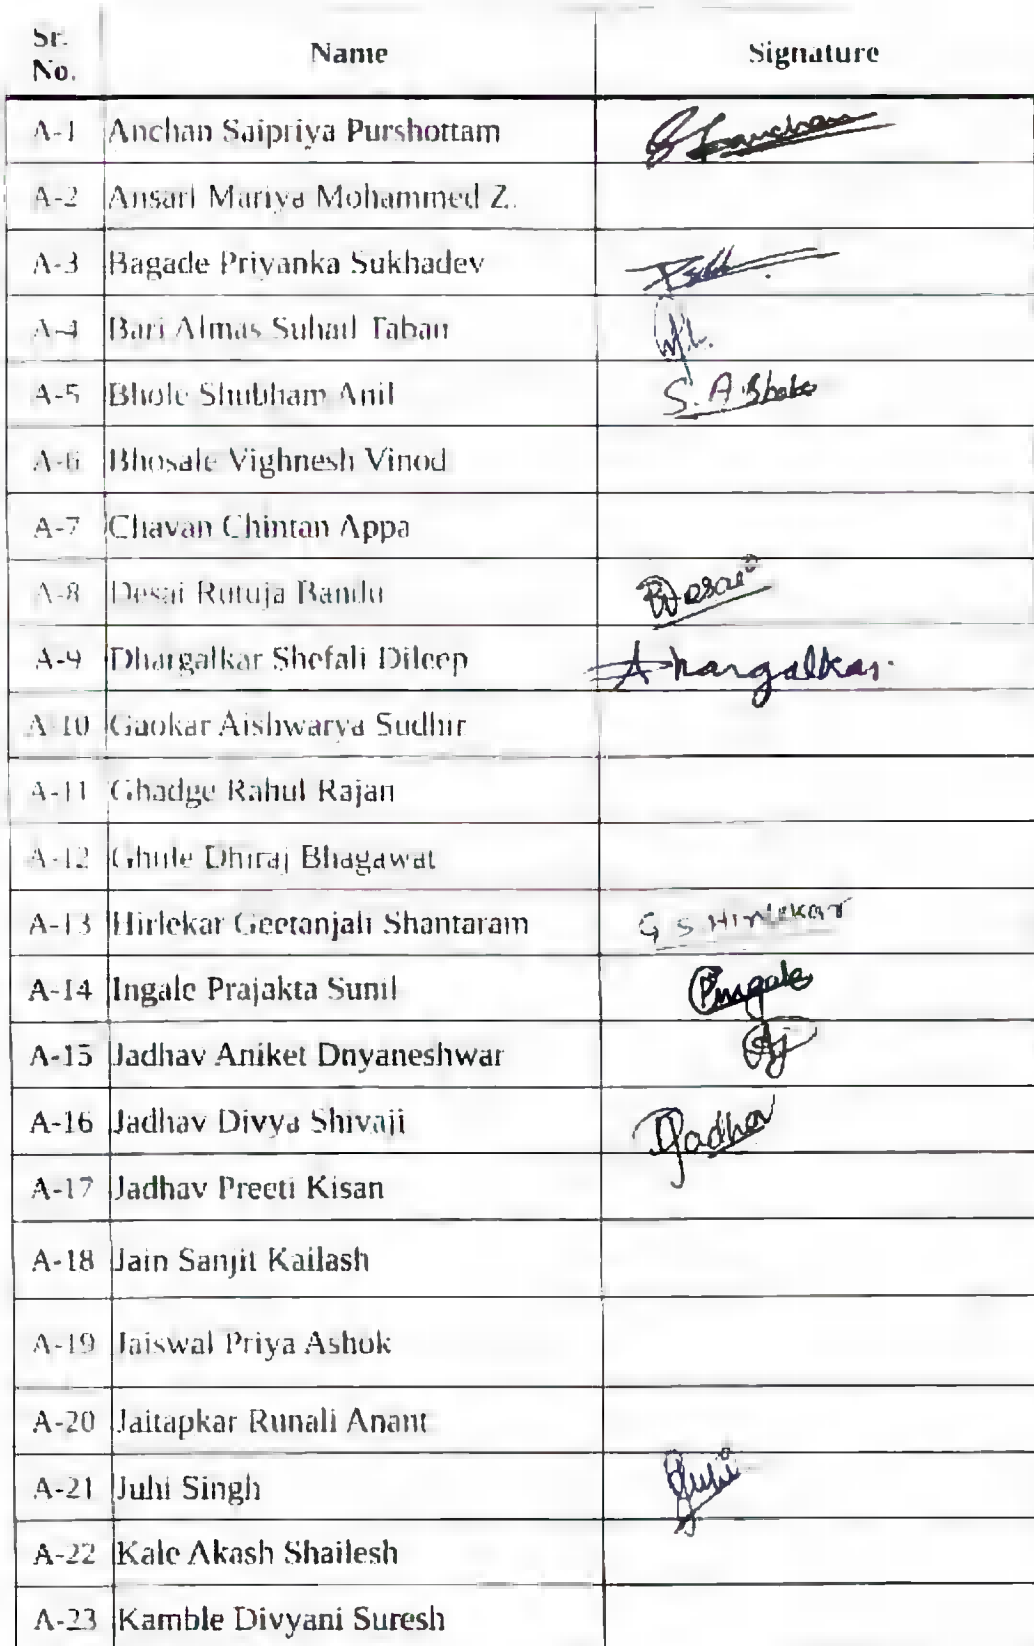 Sr. No. Name Signature
A-1 Anchan Saipriya Purshottam
A-2 Ansari Mariya Mohammed Z.
A-3 Bagade Priyanka Sukhadev
A-4 Bari Almas Suhail Taban
A-5 Bhole Shubham Anil S. A. Bhole
A-6 Bhosale Vighnesh Vinod
A-7 Chavan Chintan Appa
A-8 Desai Rutuja Bandu RDesai
A-9 Dhargalkar Shefali Dileep Dhargalkar
A-10 Gaokar Aishwarya Sudhir
A-11 Ghadge Rahul Rajan
A-12 Ghule Dhiraj Bhagawat
A-13 Hirlekar Geetanjali Shantaram G S Hirlekar
A-14 Ingale Prajakta Sunil PIngale
A-15 Jadhav Aniket Dnyaneshwar
A-16 Jadhav Divya Shivaji DJadhav
A-17 Jadhav Preeti Kisan
A-18 Jain Sanjit Kailash
A-19 Jaiswal Priya Ashok
A-20 Jaitapkar Runali Anant
A-21 Juhi Singh Juhi
A-22 Kale Akash Shailesh
A-23 Kamble Divyani Suresh